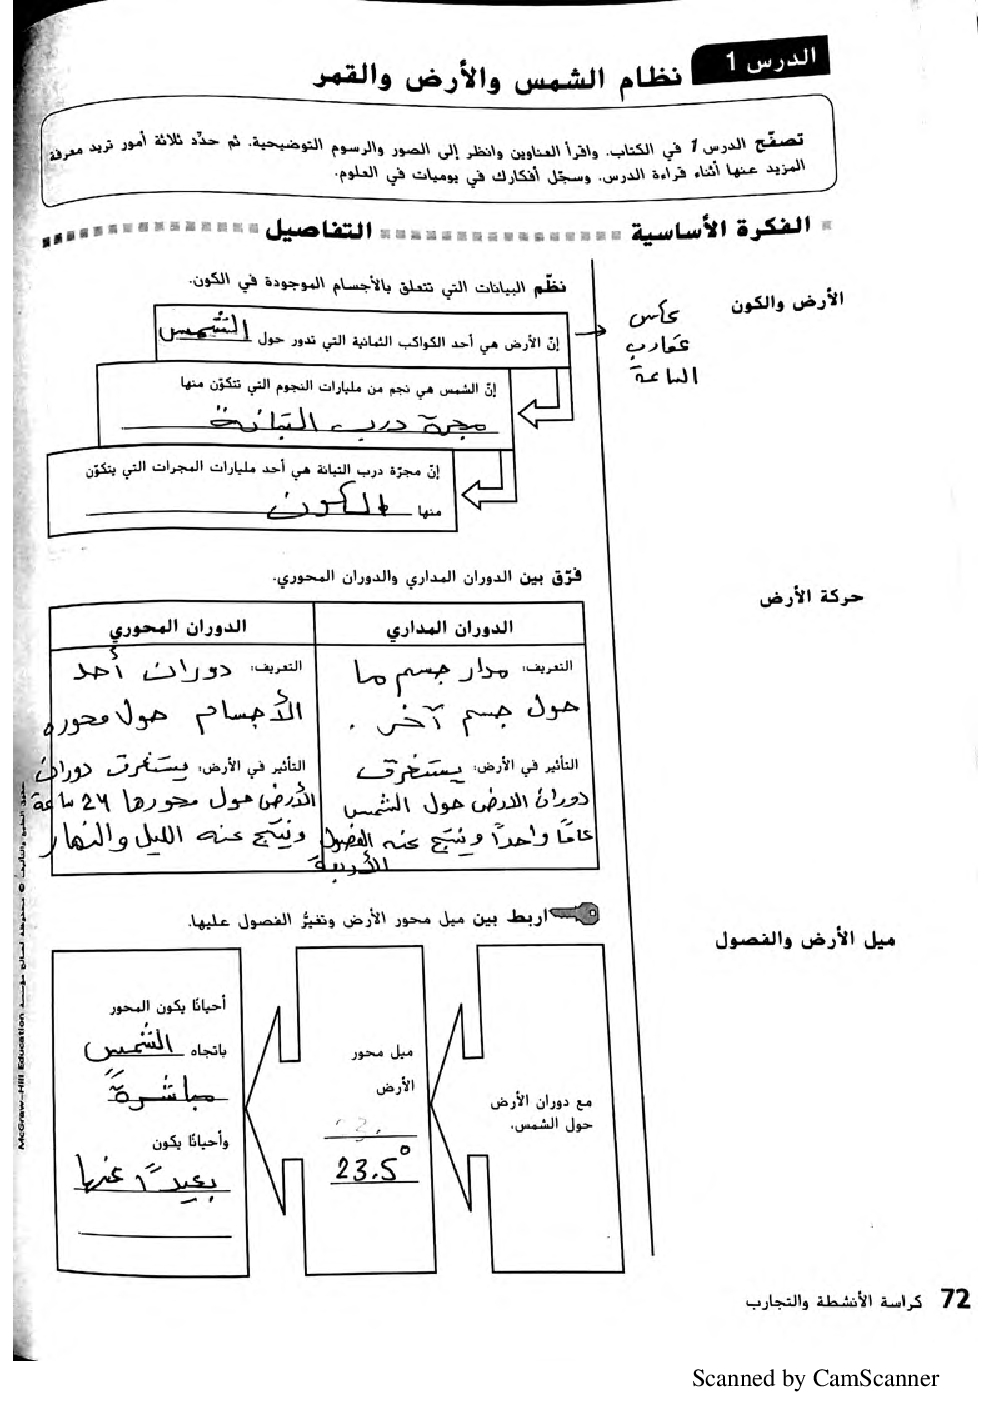 الدرس 1
نظام الشمس والأرض والقمر
تصفّح الدرس 1 في الكتاب. واقرأ العناوين وانظر إلى الصور والرسوم التوضيحية. ثم حدّد ثلاثة أمور تريد معرفة
المزيد عنها أثناء قراءة الدرس. وسجّل أفكارك في يوميات في العلوم.
الفكرة الأساسية
التفاصيل
الأرض والكون
عكس
عقارب
الساعة
نظّم البيانات التي تتعلق بالأجسام الموجودة في الكون.
إنّ الأرض هي أحد الكواكب الثمانية التي تدور حول الشمس
إنّ الشمس هي نجم من مليارات النجوم التي تتكوّن منها
مجرة درب التبانة
إنّ مجرّة درب التبانة هي أحد مليارات المجرات التي يتكوّن
منها الكون
حركة الأرض
فرّق بين الدوران المداري والدوران المحوري.
الدوران المداري
التعريف: مدار جسم ما
حول جسم آخر.
التأثير في الأرض: يستغرق
دوران الارض حول الشمس
عامًا واحدًا وينتج عنه الفصول
الأربعة
الدوران المحوري
التعريف: دوران أحد
الأجسام حول محوره
التأثير في الأرض: يستغرق دوران
الأرض حول محورها 24 ساعة
وينتج عنه الليل والنهار
ميل الأرض والفصول
اربط بين ميل محور الأرض وتغيُّر الفصول عليها.
مع دوران الأرض
حول الشمس،
ميل محور
الأرض
23.5°
أحيانًا يكون المحور
باتجاه الشمس
مباشرةً
وأحيانًا يكون
بعيدًا عنها
McGraw-Hill Education
72 كراسة الأنشطة والتجارب
Scanned by CamScanner